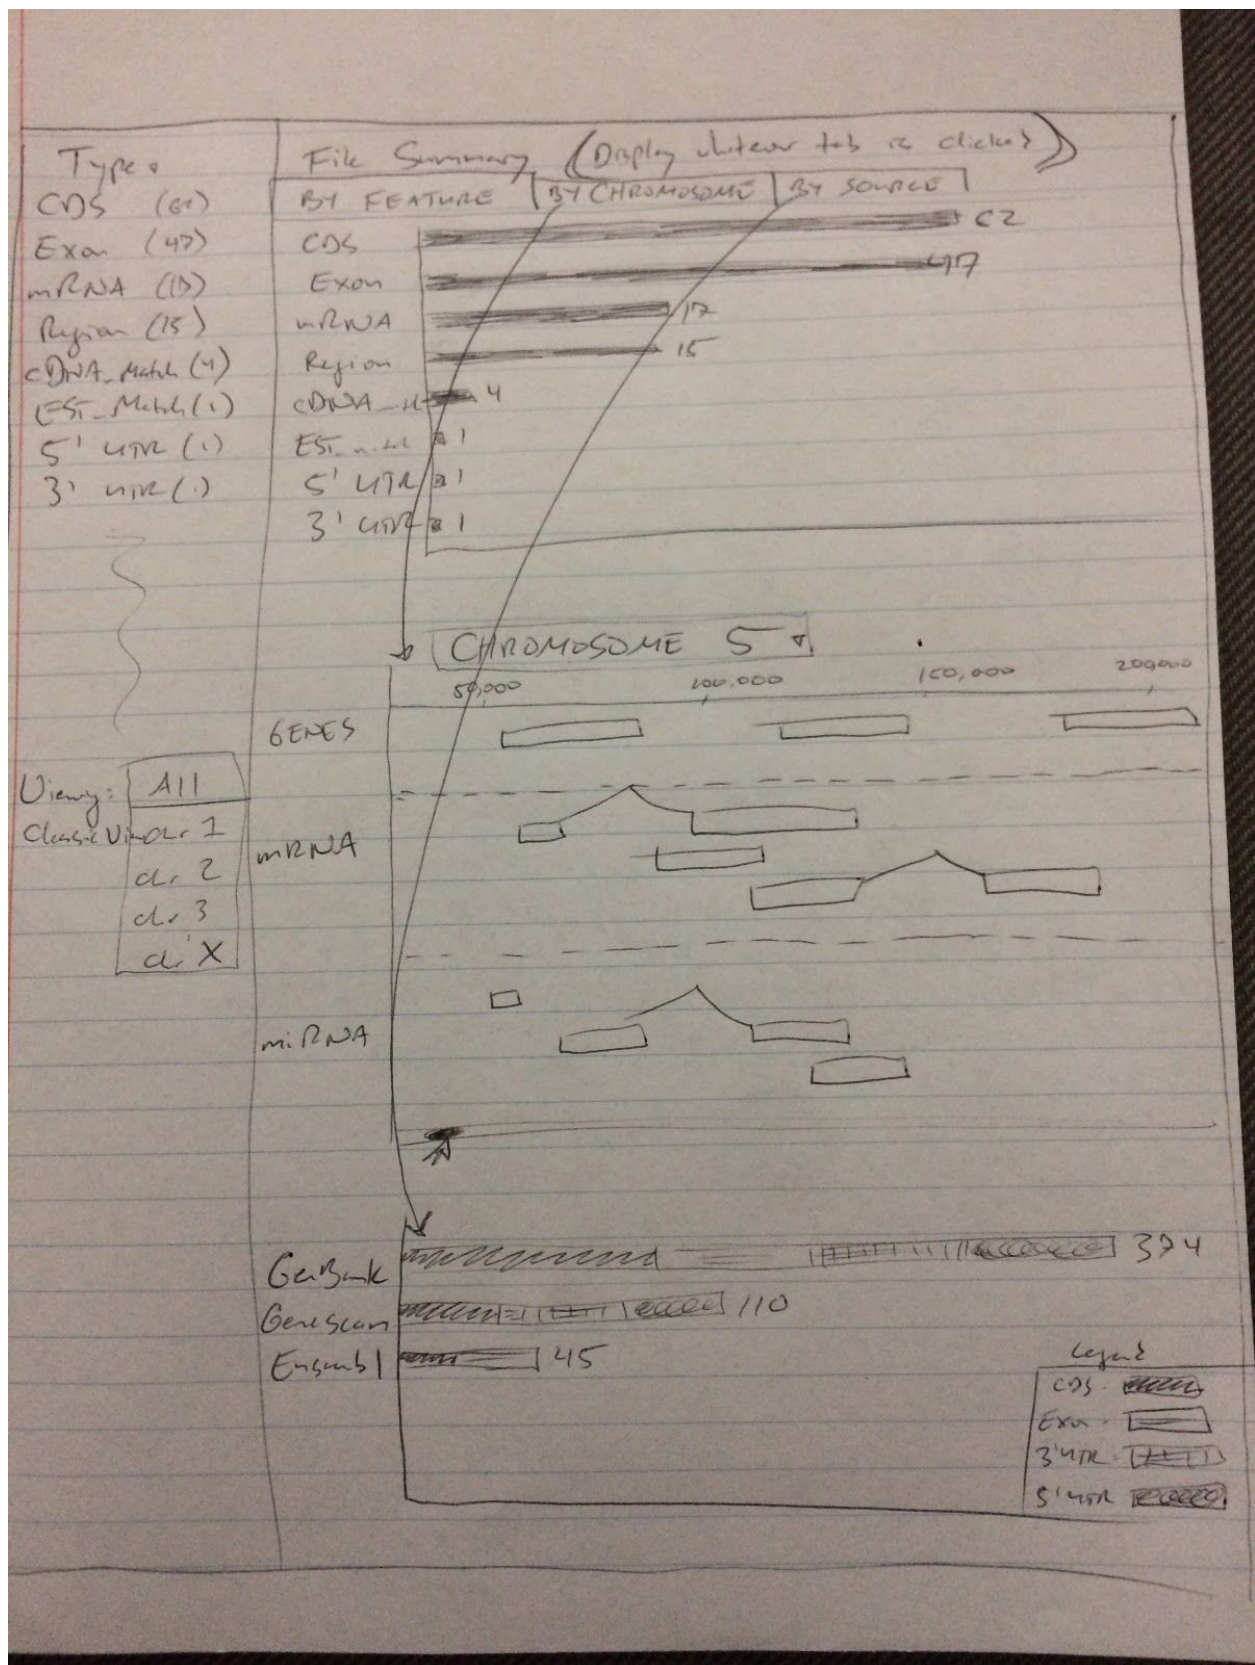 Type.
CDS (62)
Exon (47)
mRNA
Region (15)
cDNA_Match (4)
EST_Match (1)
5' UTR (1)
3' UTR (1)
Viewing: All
Classic View chr 1
chr 2
chr 3
chr X
File Summary (Display whatever tab is clicked)
BY FEATURE BY CHROMOSOME BY SOURCE
CDS 62
Exon 47
mRNA 17
Region 15
cDNA 4
EST 1
5' UTR 1
3' UTR 1
CHROMOSOME 5
50,000 100,000 150,000 200,000
GENES
mRNA
miRNA
GenBank 374
Genescan 110
Ensembl 45
Legend
CDS
Exon
3' UTR
5' UTR